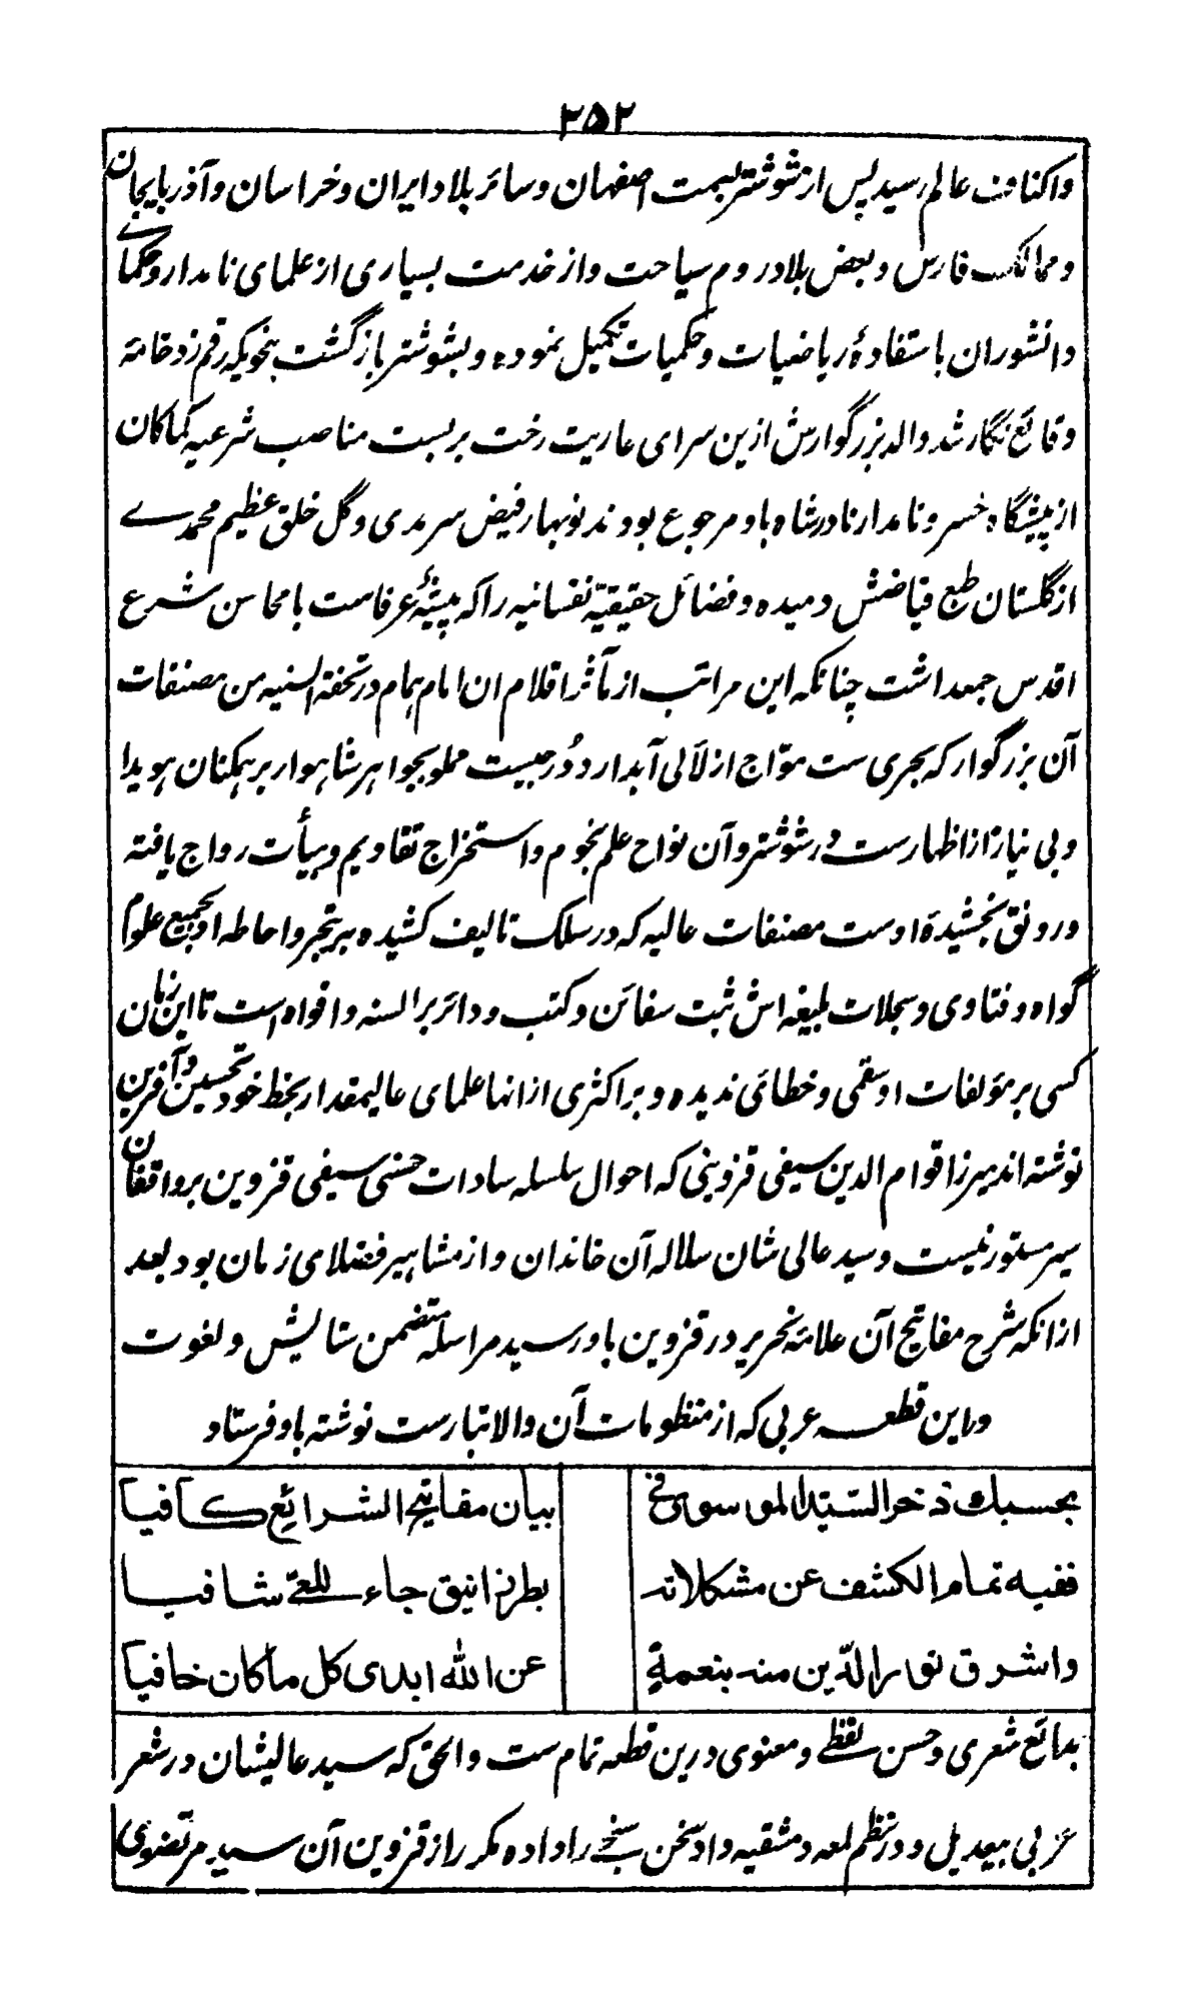 ۲۵۲
واکناف عالم رسید پس از شوشتر بسمت اصفهان و سائر بلاد ایران و خراسان و آذربایجان
و ممالک فارس و بعض بلاد روم سیاحت و از خدمت بسیاری از علمای نامدار و حکمای
دانشوران باستفادهٔ ریاضیات و حکمیات تکمیل نموده و بشوشتر بازگشت بنحویکه رقم زد خامهٔ
وقائع نگار شد والد بزرگوارش ازین سرای عاریت رخت بربست مناصب شرعیه کماکان
از پیشگاه خسرو نامدار نادر شاه باو مرجوع بودند نوبهار فیض سرمدی و گل خلق عظیم محمدے
از گلستان طبع فیاضش دمیده و فضائل حقیقیّهٔ نفسانیه را که پیشهٔ عرفاست با محاسن شرع
اقدس جمع داشت چنانکه این مراتب از مآثر اقلام ان امام همام در تحفة السنیه من مصنفات
آن بزرگوار که بحری ست موّاج از لآلی آبدار و دُرجیست مملو بجواهر شاهوار بر همگنان هویدا
و بی نیاز از اظهارست و در شوشتر و آن نواح علم نجوم و استخراج تقاویم و هیأت رواج یافته
و رونق بخشیدهٔ اوست مصنفات عالیه که در سلک تالیف کشیده بر تبحر و احاطه او بجمیع علوم
گواه و فتاوی و سجلات بلیغه اش ثبت سفائن و کتب و دائر بر السنه و افواه است تا این زمان
کسی بر مؤلفات او سقمی و خطائی ندیده و بر اکثری از انها علمای عالیمقدار بخط خود تحسین و آفرین
نوشته اند میرزا قوام الدین سیفی قزوینی که احوال سلسله سادات حسنی سیفی قزوین بر واقفان
سیر مستور نیست و سید عالی شان سلاله آن خاندان و از مشاهیر فضلای زمان بود بعد
ازانکه شرح مفاتیح آن علامهٔ نحریر در قزوین باو رسید مراسلهٔ متضمن ستایش و نعوت
و این قطعه عربی که از منظومات آن والا تبارست نوشته باو فرستاد
بحسبك ذخر السّیّد الموسوی فی
بیان مفاتیح الشرائع کافیا
ففیه تمام الکشف عن مشکلاته
بطرز انیق جاء للعیّ شافیا
واشرق نور الدّین منه بنعمةٍ
عن الله ابدی کل ما کان خافیا
بدائع شعری و حسن لفظے و معنوی درین قطعه تمام ست و الحق که سید عالیشان در شعر
عربی بیعدیل و در نظم لمعه دمشقیه داد سخن سنجے را داده مکرر از قزوین آن سید مرتضوی